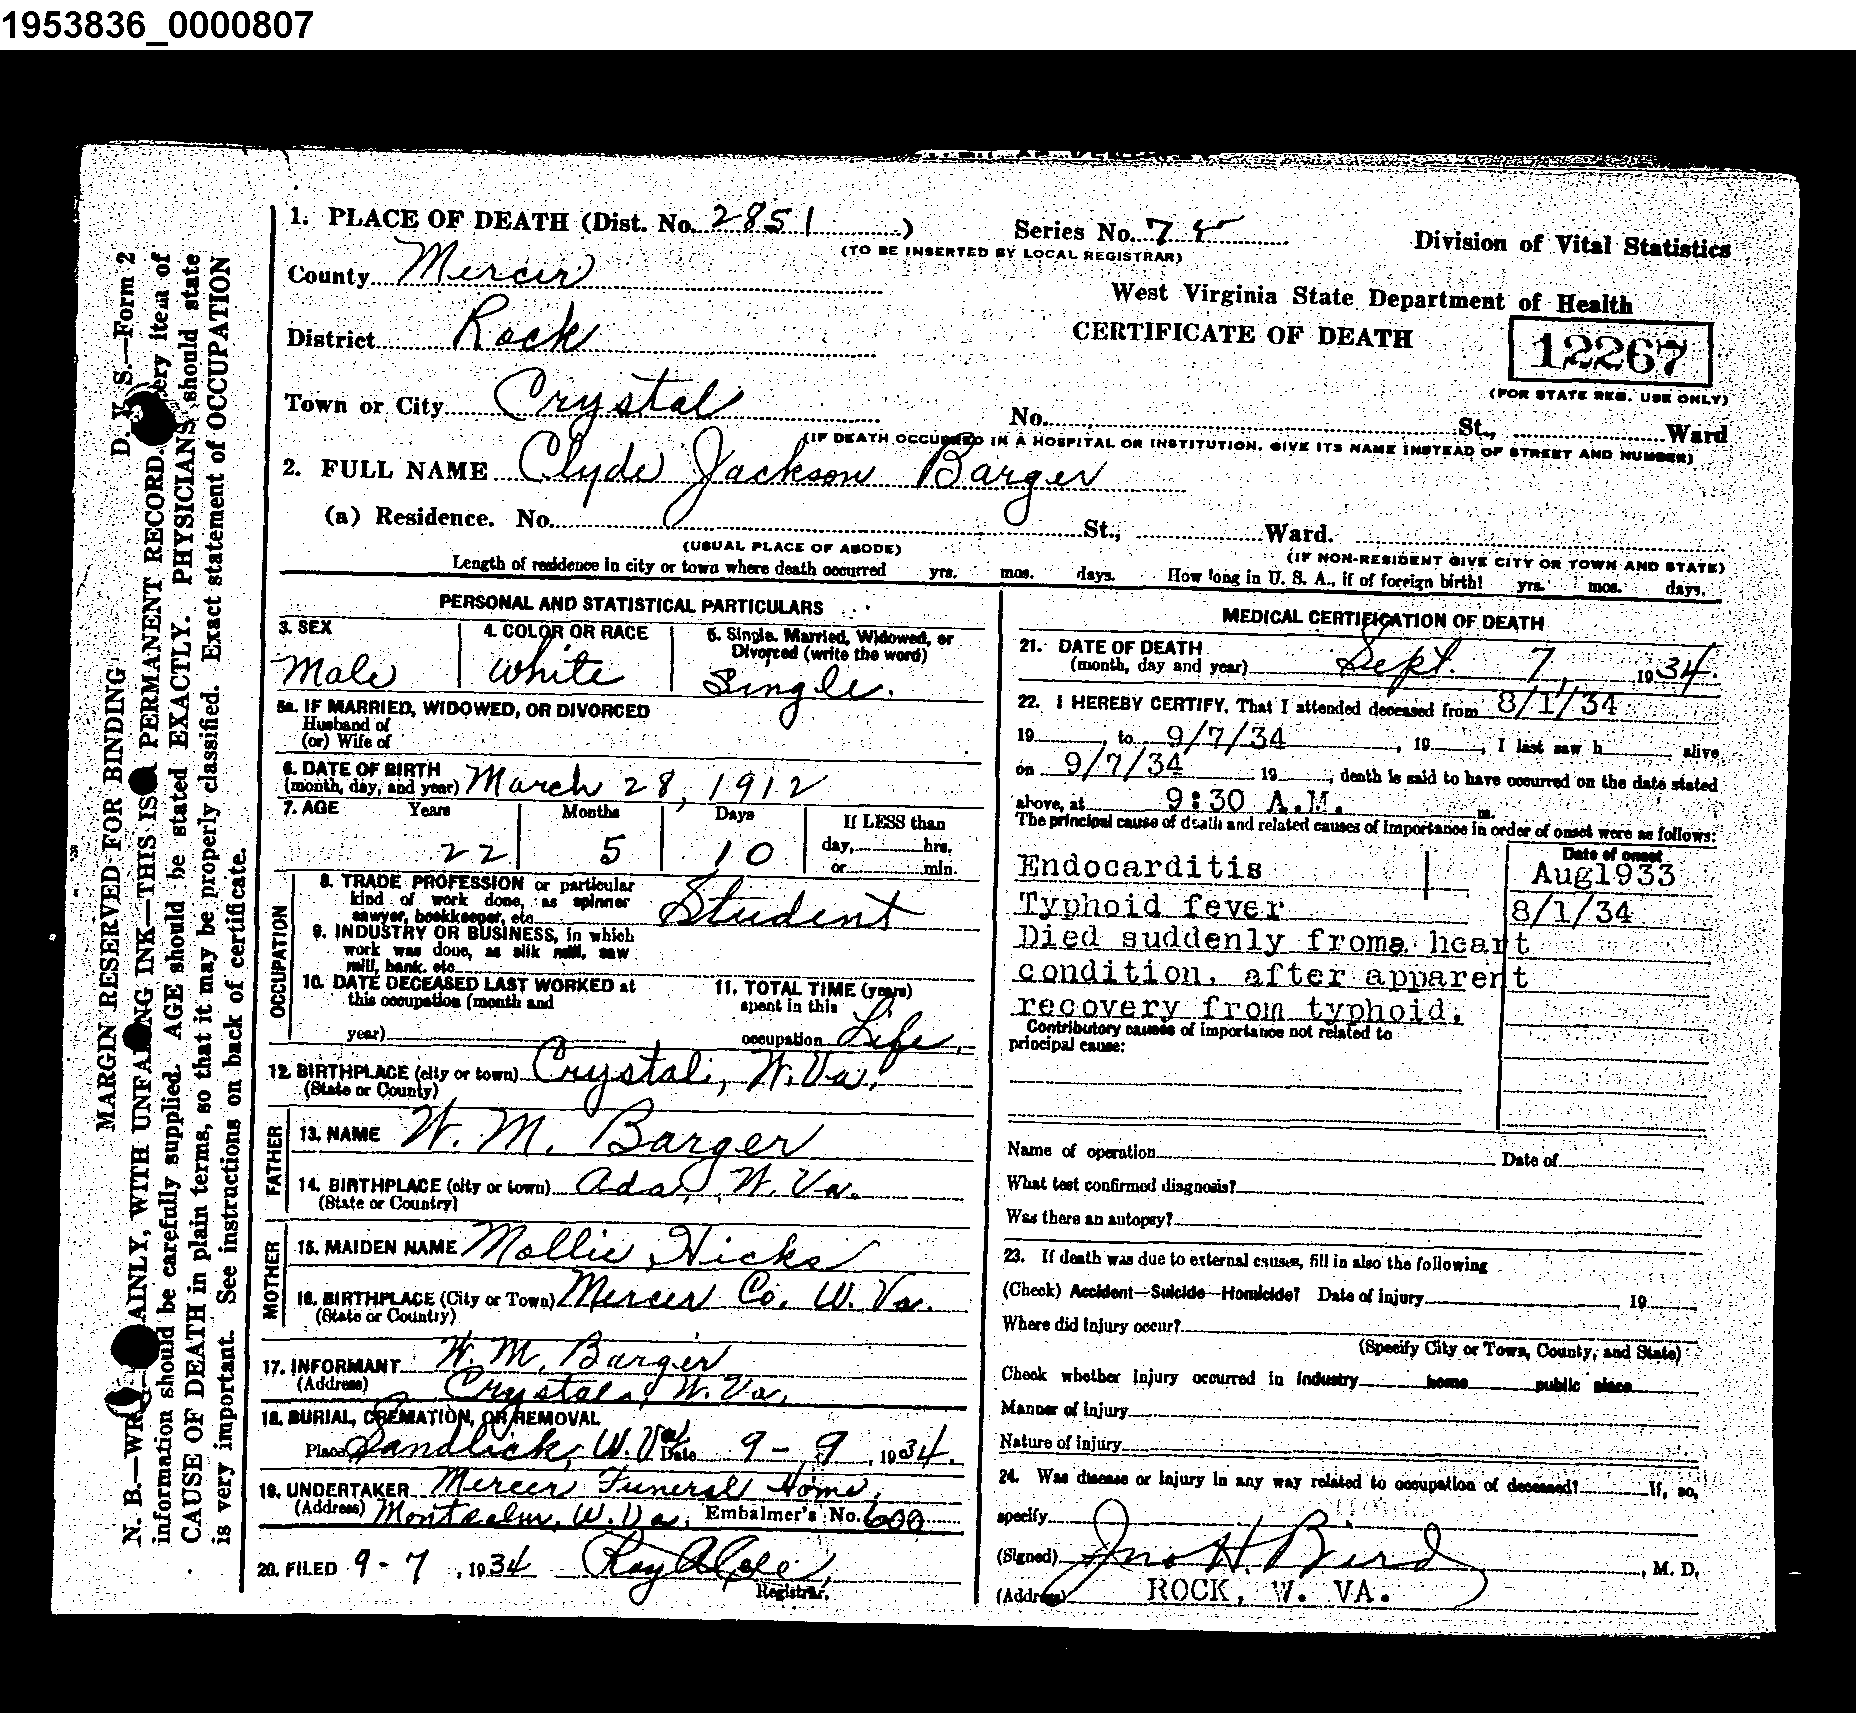 1953836_0000807
1. PLACE OF DEATH (Dist. No. 2851)
Series No. 75
(TO BE INSERTED BY LOCAL REGISTRAR)
Division of Vital Statistics
County Mercer
West Virginia State Department of Health
District Rock
CERTIFICATE OF DEATH
12267
(FOR STATE REG. USE ONLY)
Town or City Crystal
No. St., Ward
(IF DEATH OCCURRED IN A HOSPITAL OR INSTITUTION, GIVE ITS NAME INSTEAD OF STREET AND NUMBER)
2. FULL NAME Clyde Jackson Barger
(a) Residence. No. St., Ward.
(USUAL PLACE OF ABODE)
(IF NON-RESIDENT GIVE CITY OR TOWN AND STATE)
Length of residence in city or town where death occurred yrs. mos. days. How long in U. S. A., if of foreign birth! yrs. mos. days.
PERSONAL AND STATISTICAL PARTICULARS
3. SEX
Male
4. COLOR OR RACE
White
5. Single, Married, Widowed, or
Divorced (write the word)
Single.
5a. IF MARRIED, WIDOWED, OR DIVORCED
Husband of
(or) Wife of
6. DATE OF BIRTH
(month, day, and year) March 28, 1912
7. AGE Years Months Days
22 5 10
If LESS than
day, hrs.
or min.
OCCUPATION
8. TRADE PROFESSION or particular
kind of work done, as spinner
sawyer, bookkeeper, etc. Student
9. INDUSTRY OR BUSINESS, in which
work was done, as silk mill, saw
mill, bank, etc.
10. DATE DECEASED LAST WORKED at
this occupation (month and
year)
11. TOTAL TIME (years)
spent in this
occupation Life.
12. BIRTHPLACE (city or town) Crystal, W. Va.
(State or County)
FATHER
13. NAME W. M. Barger
14. BIRTHPLACE (city or town) Ada, W. Va.
(State or Country)
MOTHER
15. MAIDEN NAME Mollie Hicks
16. BIRTHPLACE (City or Town) Mercer Co. W. Va.
(State or Country)
17. INFORMANT W. M. Barger
(Address) Crystal, W. Va.
18. BURIAL, CREMATION, OR REMOVAL
Place Sandlick, W. Va. Date 9-9, 1934.
19. UNDERTAKER Mercer Funeral Home,
(Address) Montcalm, W. Va. Embalmer's No. 600
20. FILED 9-7, 1934 Roy A Cole,
Registrar.
MEDICAL CERTIFICATION OF DEATH
21. DATE OF DEATH
(month, day and year) Sept. 7, 1934.
22. I HEREBY CERTIFY, That I attended deceased from 8/1/34
19 , to 9/7/34 , 19 , I last saw h alive
on 9/7/34 19 , death is said to have occurred on the date stated
above, at 9:30 A.M. m.
The principal cause of death and related causes of importance in order of onset were as follows:
Date of onset
Endocarditis Aug1933
Typhoid fever 8/1/34
Died suddenly froma heart
condition, after apparent
recovery from typhoid.
Contributory causes of importance not related to
principal cause:
Name of operation Date of
What test confirmed diagnosis?
Was there an autopsy?
23. If death was due to external causes, fill in also the following
(Check) Accident—Suicide—Homicide? Date of injury 19
Where did injury occur?
(Specify City or Town, County, and State)
Check whether injury occurred in industry home public place
Manner of injury
Nature of injury
24. Was disease or injury in any way related to occupation of deceased? If, so,
specify
(Signed) Jno H. Bird, M. D.
(Address) ROCK, W. VA.
D. V. S.—Form 2
MARGIN RESERVED FOR BINDING
N. B.—WRITE PLAINLY, WITH UNFADING INK—THIS IS A PERMANENT RECORD. Every item of
information should be carefully supplied. AGE should be stated EXACTLY. PHYSICIANS should state
CAUSE OF DEATH in plain terms, so that it may be properly classified. Exact statement of OCCUPATION
is very important. See instructions on back of certificate.